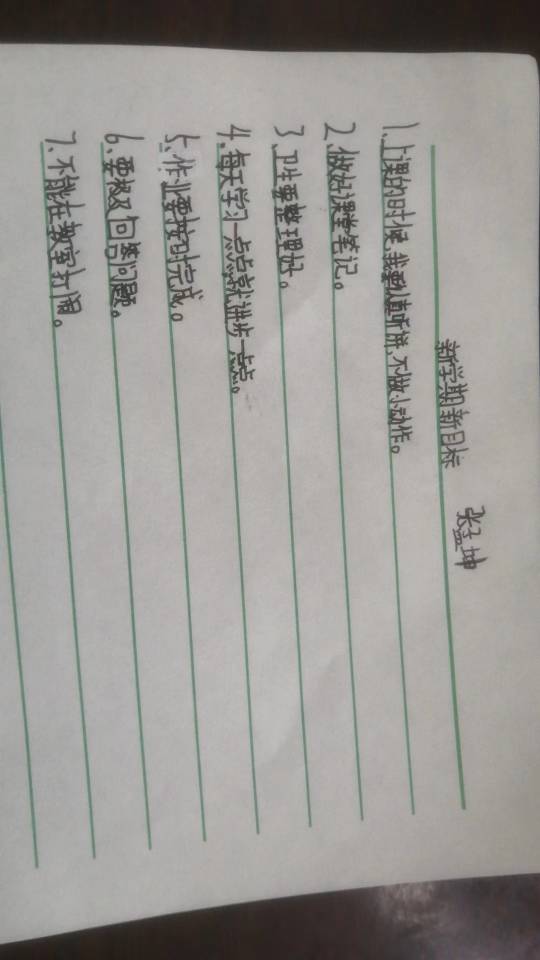 新学期新目标
张孟坤
1、上课的时候,我要认真听讲、不做小动作。
2、做好课堂笔记。
3、卫生要整理好。
4、每天学习一点点,就进步一点点。
5、作业要按时完成。
6、要积极回答问题。
7、不能在教室打闹。